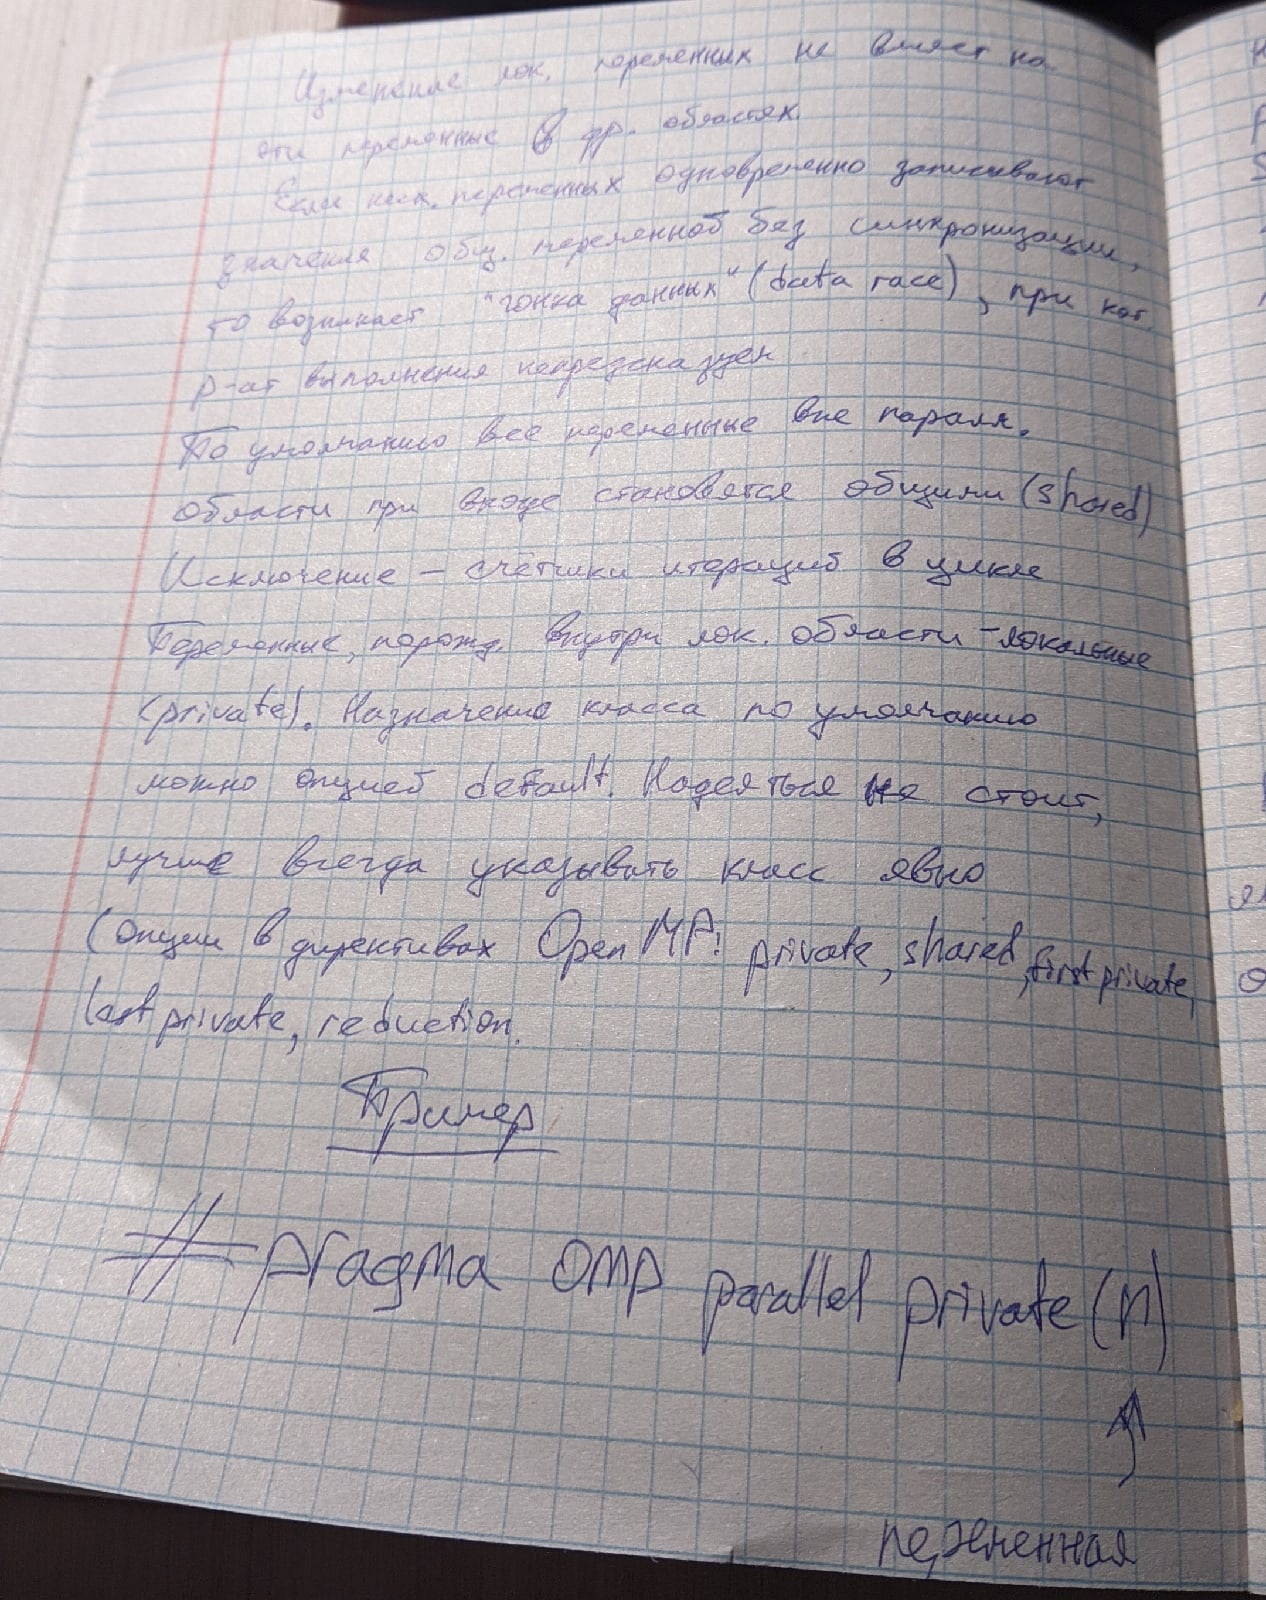 Изменение лок. переменных не влияет на
эти переменные в др. областях.
Если неск. переменных одновременно записывают
значения общ. переменной без синхронизации,
то возникает "гонка данных" (data race), при кот.
р-ат выполнения непредсказуем
По умолчанию все переменные вне паралл.
области при входе становятся общими (shared)
Исключение – счётчики итераций в цикле
Переменные, порожд. внутри лок. области – локальные
(private). Назначение класса по умолчанию
можно опцией default. Надеяться не стоит,
лучше всегда указывать класс явно
(опции в директивах OpenMP: private, shared, firstprivate,
lastprivate, reduction.
Пример
#pragma omp parallel private (n)
переменная